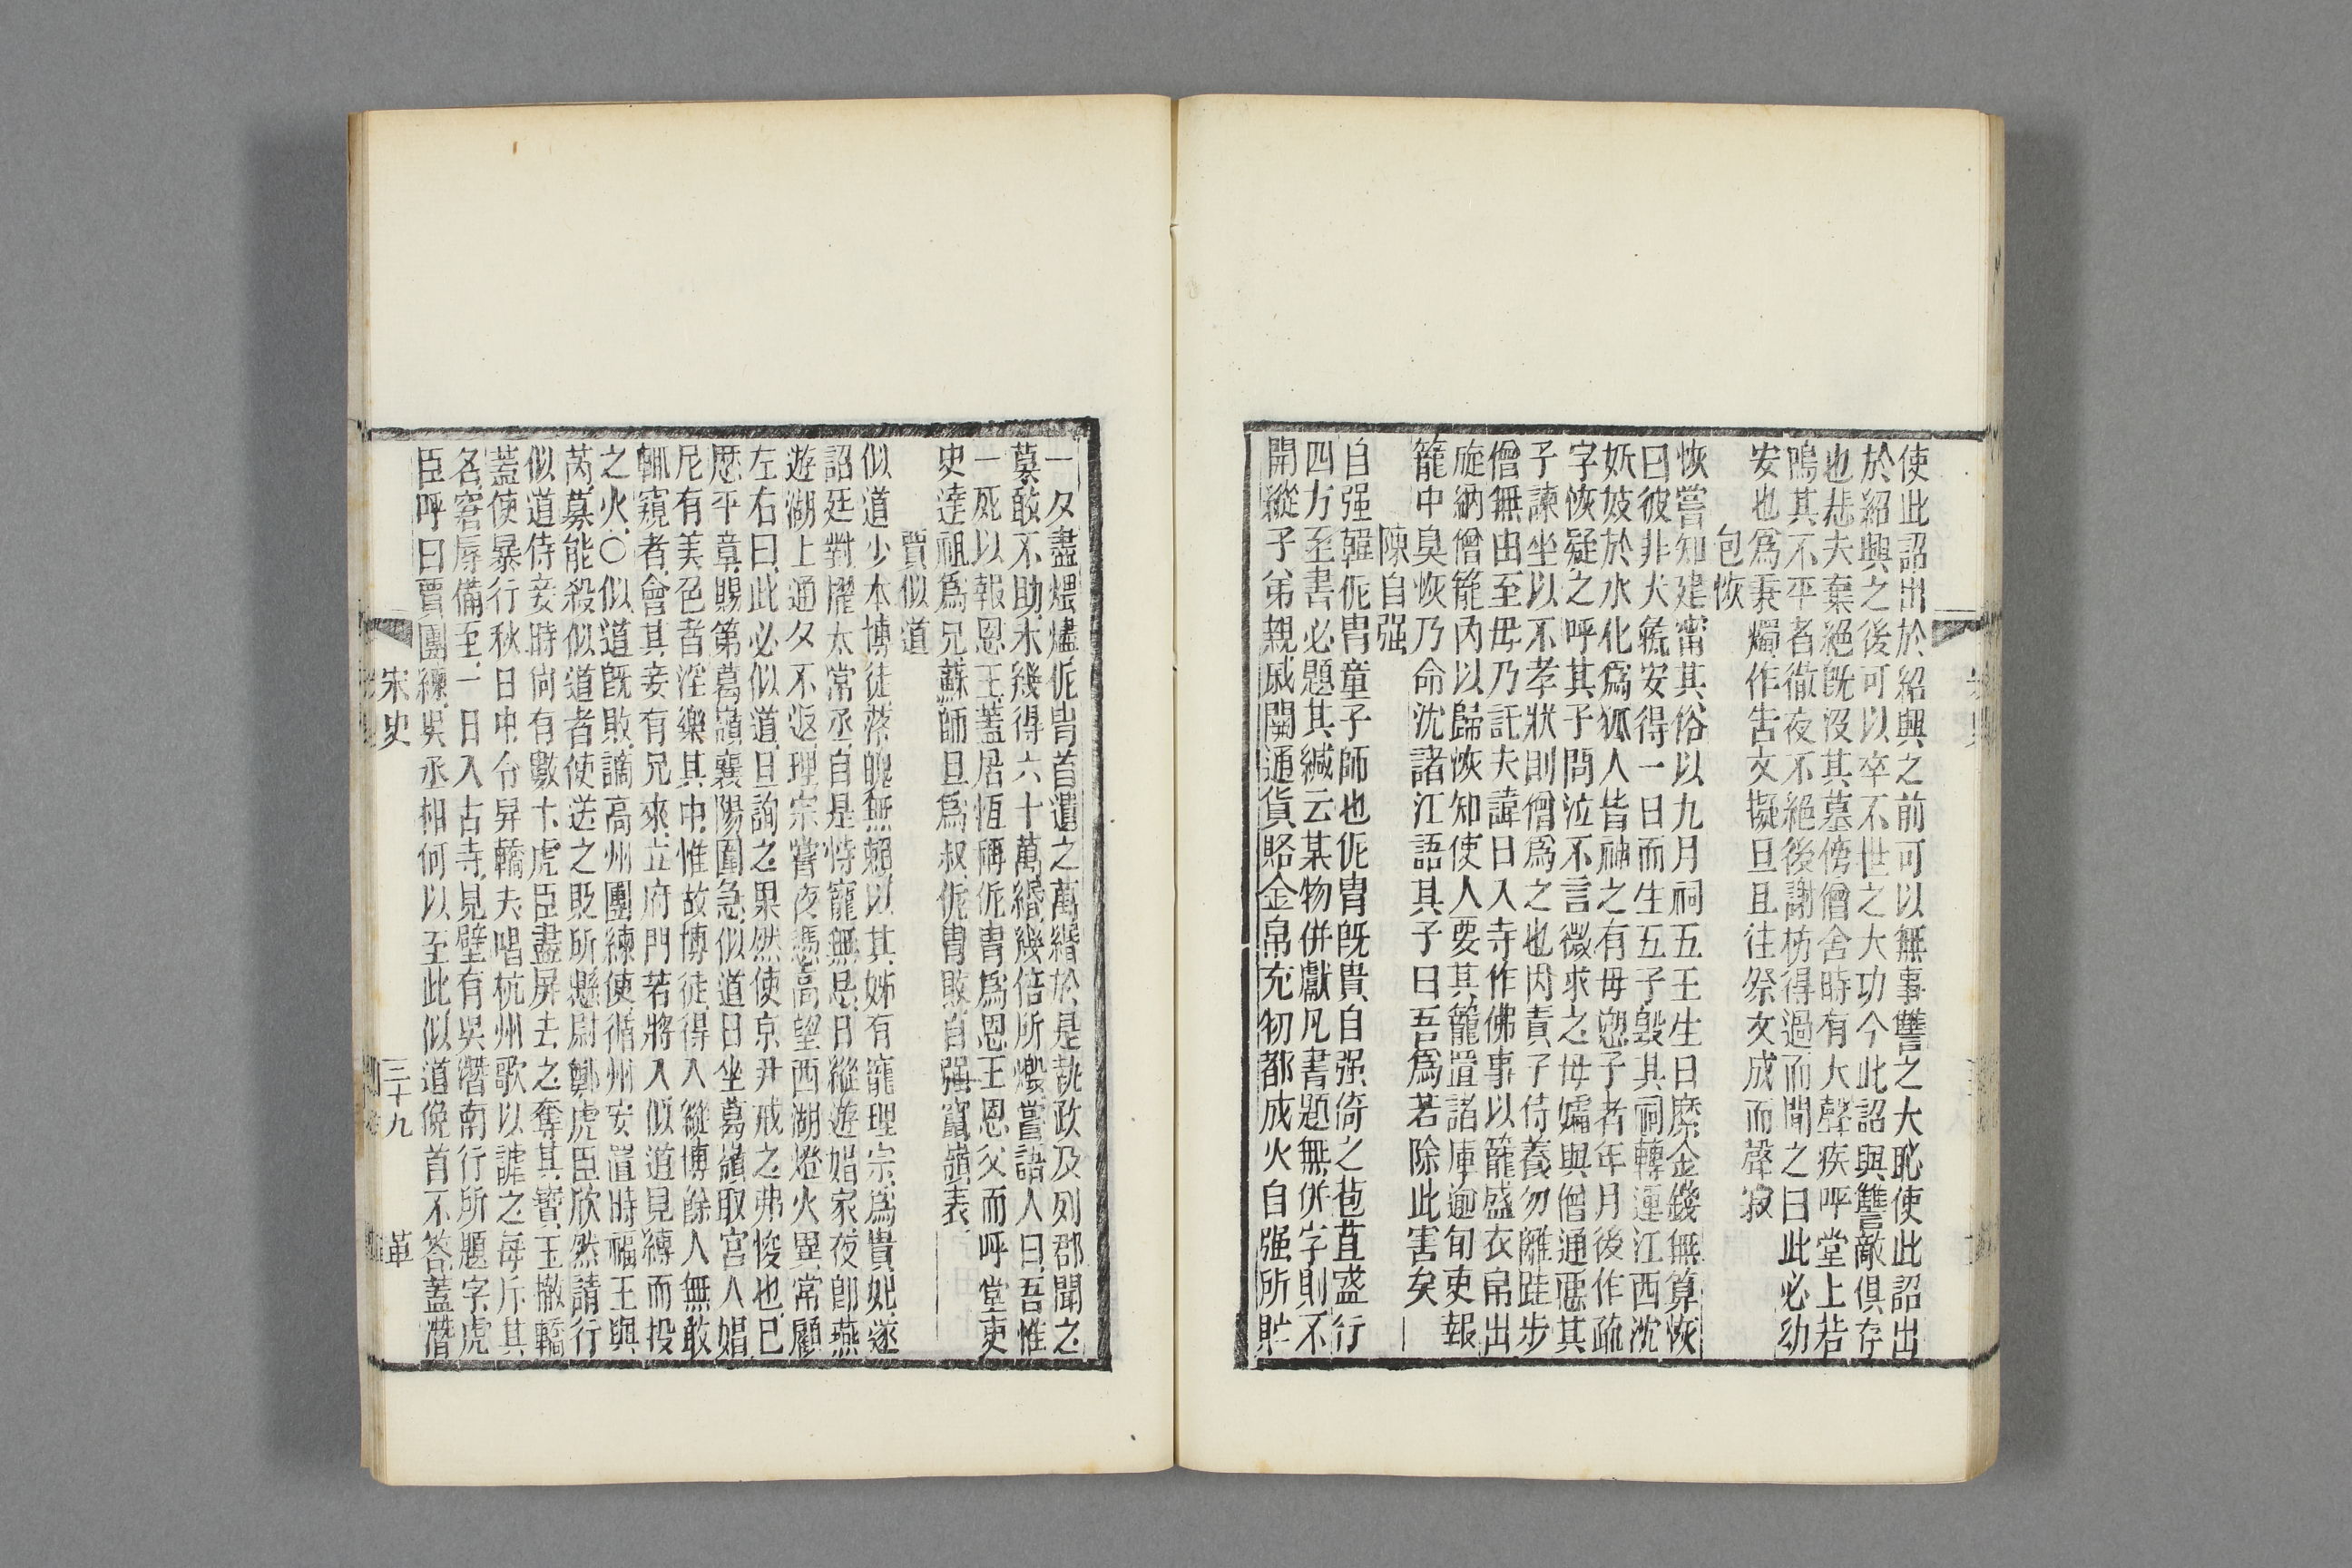 使此詔出於紹興之前可以無事讐之大恥使此詔出
於紹興之後可以卒不世之大功今此詔與讐敵俱存
也悲夫棄絕旣沒其墓傍僧舍時有大聲疾呼堂上若
鳴其不平者徹夜不絕後謝枋得過而聞之曰此必幼
安也爲秉燭作告文擬旦且往祭文成而聲寂
包恢
恢嘗知建甯其俗以九月祠五王生日糜金錢無算恢
曰彼非犬彘安得一日而生五子毀其祠轉運江西沈
妖妓於水化爲狐人皆神之有母愬子者年月後作疏
字恢疑之呼其子問泣不言微求之母孀與僧通惡其
子諫坐以不孝狀則僧爲之也因責子侍養勿離跬步
僧無由至母乃託夫諱日入寺作佛事以籠盛衣帛出
旋納僧籠內以歸恢知使人要其籠置諸庫逾旬吏報
籠中臭恢乃命沈諸江語其子曰吾爲若除此害矣
陳自强
自强韓侂冑童子師也侂冑旣貴自强倚之苞苴盛行
四方至書必題其緘云某物併獻凡書題無併字則不
開縱子弟親戚關通貨賂金帛充牣都成火自强所貯
一夕盡煨燼侂冑首遺之萬緡於是執政及列郡聞之
莫敢不助未幾得六十萬緡幾倍所燬嘗語人曰吾惟
一死以報恩王蓋居恆稱侂冑爲恩王恩父而呼堂吏
史達祖爲兄蘇師旦爲叔侂冑敗自强竄嶺表
賈似道
似道少本博徒落魄無賴以其姊有寵理宗爲貴妃遂
詔廷對擢太常丞自是恃寵無忌日縱遊娼家夜卽燕
遊湖上通夕不返理宗嘗夜憑高望西湖燈火異常顧
左右曰此必似道旦詢之果然使京尹戒之弗悛也已
歷平章賜第葛嶺襄陽圍急似道日坐葛嶺取宮人娼
尼有美色者淫樂其中惟故博徒得入縱博餘人無敢
輒窺者會其妾有兄來立府門若將入似道見縛而投
之火〇似道旣敗謫高州團練使循州安置時福王與
芮募能殺似道者使送之貶所縣尉鄭虎臣欣然請行
似道侍妾時尙有數十虎臣盡屏去之奪其寶玉撤轎
蓋使暴行秋日中令舁轎夫唱杭州歌以謔之每斥其
名窘辱備至一日入古寺見壁有吳潛南行所題字虎
臣呼曰賈團練吳丞相何以至此似道俛首不答蓋潛
宋史
三十九
革